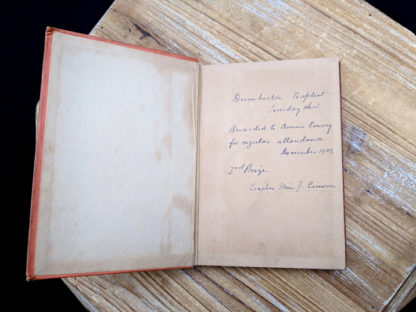 Dumbarton Baptist
Sunday Sch.
Awarded to Annie Conroy
for regular attendance.
December 1909.
3rd Prize.
Teacher, Miss J. Cameron